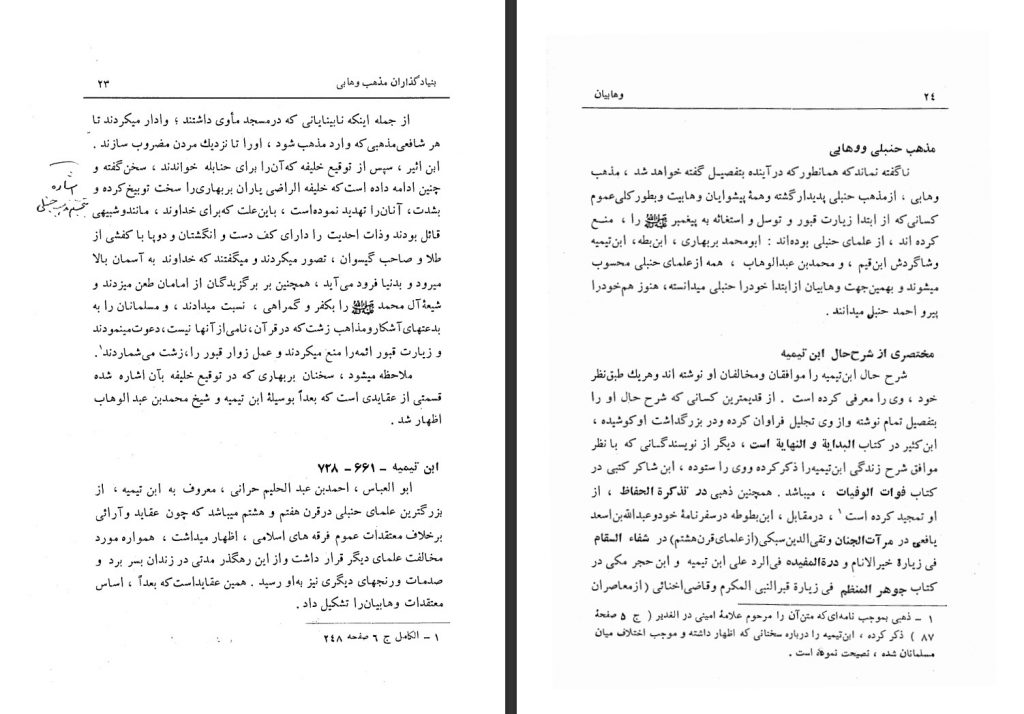 بنیادگذاران مذهب وهابی
۲۳
از جمله اینکه نابینایانی که درمسجد مأوی داشتند ؛ وادار میکردند تا
هر شافعی‌مذهبی‌که وارد مذهب شود ، اورا تا نزدیك مردن مضروب سازند .
ابن اثیر ، سپس از توقیع خلیفه که‌آن‌را برای حنابله خواندند ، سخن‌گفته و
چنین ادامه داده است‌که خلیفه الراضی یاران بربهاری‌را سخت توبیخ‌کرده و
بشدت، آنان‌را تهدید نموده‌است ، باین‌علت که‌برای خداوند ، مانندوشبیهی
قائل بودند وذات احدیت را دارای کف دست و انگشتان و دوپا با کفشی از
طلا و صاحب گیسوان ، تصور میکردند و میگفتند که خداوند به آسمان بالا
میرود و بدنیا فرود می‌آید ، همچنین بر برگزیدگان از امامان طعن میزدند و
شیعهٔ آل محمد ﷺ را بکفر و گمراهی ، نسبت میدادند ، و مسلمانان را به
بدعتهای‌آشکارومذاهب زشت‌که درقرآن،نامی‌ازآنها نیست،دعوت‌مینمودند
و زیارت قبور ائمه‌را منع میکردند و عمل زوار قبور را،زشت می‌شماردند.۱
ملاحظه میشود ، سخنان بربهاری که در توقیع خلیفه بآن اشاره شده
قسمتی از عقایدی است که بعداً بوسیلهٔ ابن تیمیه و شیخ محمدبن عبدالوهاب
اظهار شد .
اشاره
مذهب حنبلی
ابن تیمیه - ۶۶۱ - ۷۲۸
ابو العباس ، احمدبن عبد الحلیم حرانی ، معروف به ابن تیمیه ، از
بزرگترین علمای حنبلی درقرن هفتم و هشتم میباشد که چون عقاید وآرائی
برخلاف معتقدات عموم فرقه های اسلامی ، اظهار میداشت ، همواره مورد
مخالفت علمای دیگر قرار داشت واز این رهگذر مدتی در زندان بسر برد و
صدمات ورنجهای دیگری نیز به‌او رسید . همین عقایداست‌که بعداً ، اساس
معتقدات وهابیان‌را تشکیل داد .
۱ - الکامل ج ۶ صفحه ۲۴۸
۲٤
وهابیان
مذهب حنبلی ووهابی
ناگفته نماندکه همانطورکه درآینده بتفصیل گفته خواهد شد ، مذهب
وهابی ، ازمذهب حنبلی پدیدارگشته وهمهٔ پیشوایان وهابیت وبطورکلی‌عموم
کسانی‌که از ابتدا زیارت قبور و توسل و استغاثه به پیغمبر ﷺ را ، منع
کرده اند ، از علمای حنبلی بوده‌اند : ابومحمد بربهاری ، ابن‌بطه، ابن‌تیمیه
وشاگردش ابن‌قیم ، و محمدبن عبدالوهاب ، همه ازعلمای حنبلی محسوب
میشوند و بهمین‌جهت وهابیان ازابتدا خودرا حنبلی میدانسته، هنوز هم‌خودرا
پیرو احمد حنبل میدانند .
مختصری از شرح‌حال ابن تیمیه
شرح حال ابن‌تیمیه را موافقان ومخالفان او نوشته اند وهریك طبق‌نظر
خود ، وی‌را معرفی کرده است . از قدیمترین کسانی که شرح حال او را
بتفصیل تمام نوشته واز وی تجلیل فراوان کرده ودر بزرگداشت اوکوشیده ،
ابن‌کثیر در کتاب البدایة و النهایة است ، دیگر از نویسندگـانی که با نظر
موافق شرح زندگی ابن‌تیمیه‌را ذکرکرده ووی را ستوده ، ابن شاکر کتبی در
کتاب فوات الوفیات ، میباشد . همچنین ذهبی در تذکرة الحفاظ ، از
او تمجید کرده است ۱ ، درمقابل ، ابن‌بطوطه درسفرنامهٔ خودوعبدالله‌بن‌اسعد
یافعی در مرآت‌الجنان وتقی‌الدین‌سبکی(ازعلمای‌قرن‌هشتم) در شفاء السقام
فی زیارة خیرالانام و درة‌المفیده فی‌الرد علی ابن تیمیه و ابن حجر مکی در
کتاب جوهر المنظم فی زیارة قبرالنبی المکرم وقاضی‌اخنائی (ازمعاصران
۱ - ذهبی بموجب نامه‌ای‌که متن‌آن را مرحوم علامهٔ امینی در الغدیر ( ج ۵ صفحهٔ
۸۷ ) ذکر کرده ، ابن‌تیمیه را درباره سخنانی که اظهار داشته و موجب اختلاف میان
مسلمانان شده ، نصیحت نموده است .